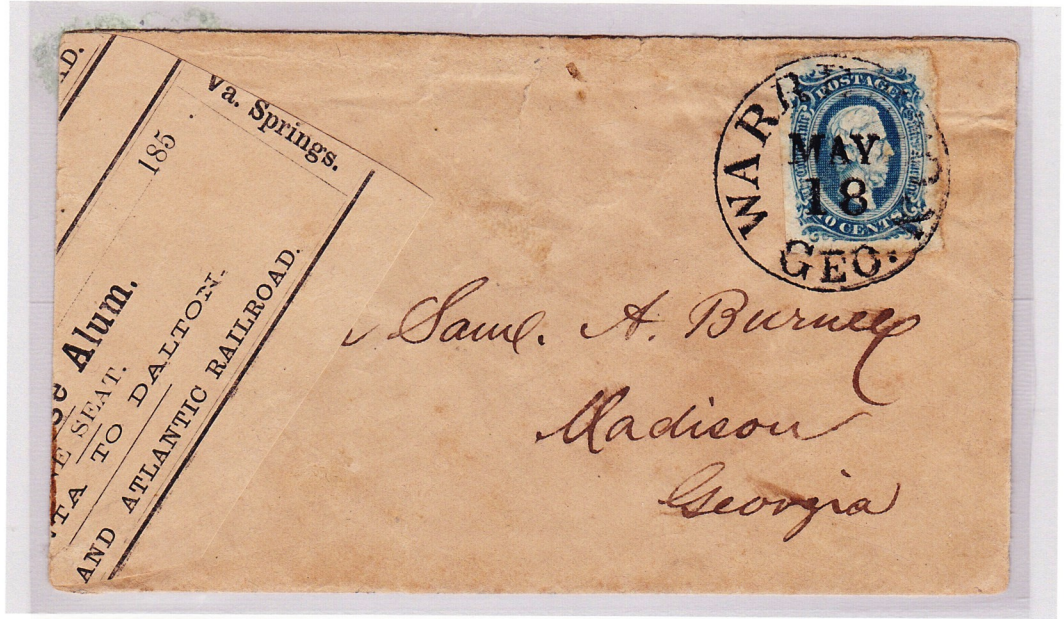 AD.
Va. Springs.
185
Alum.
SEAT.
TO DALTON.
AND ATLANTIC RAILROAD.
POSTAGE
CENTS
WARR
MAY
18
GEO.
Saml. A. Burney
Madison
Georgia